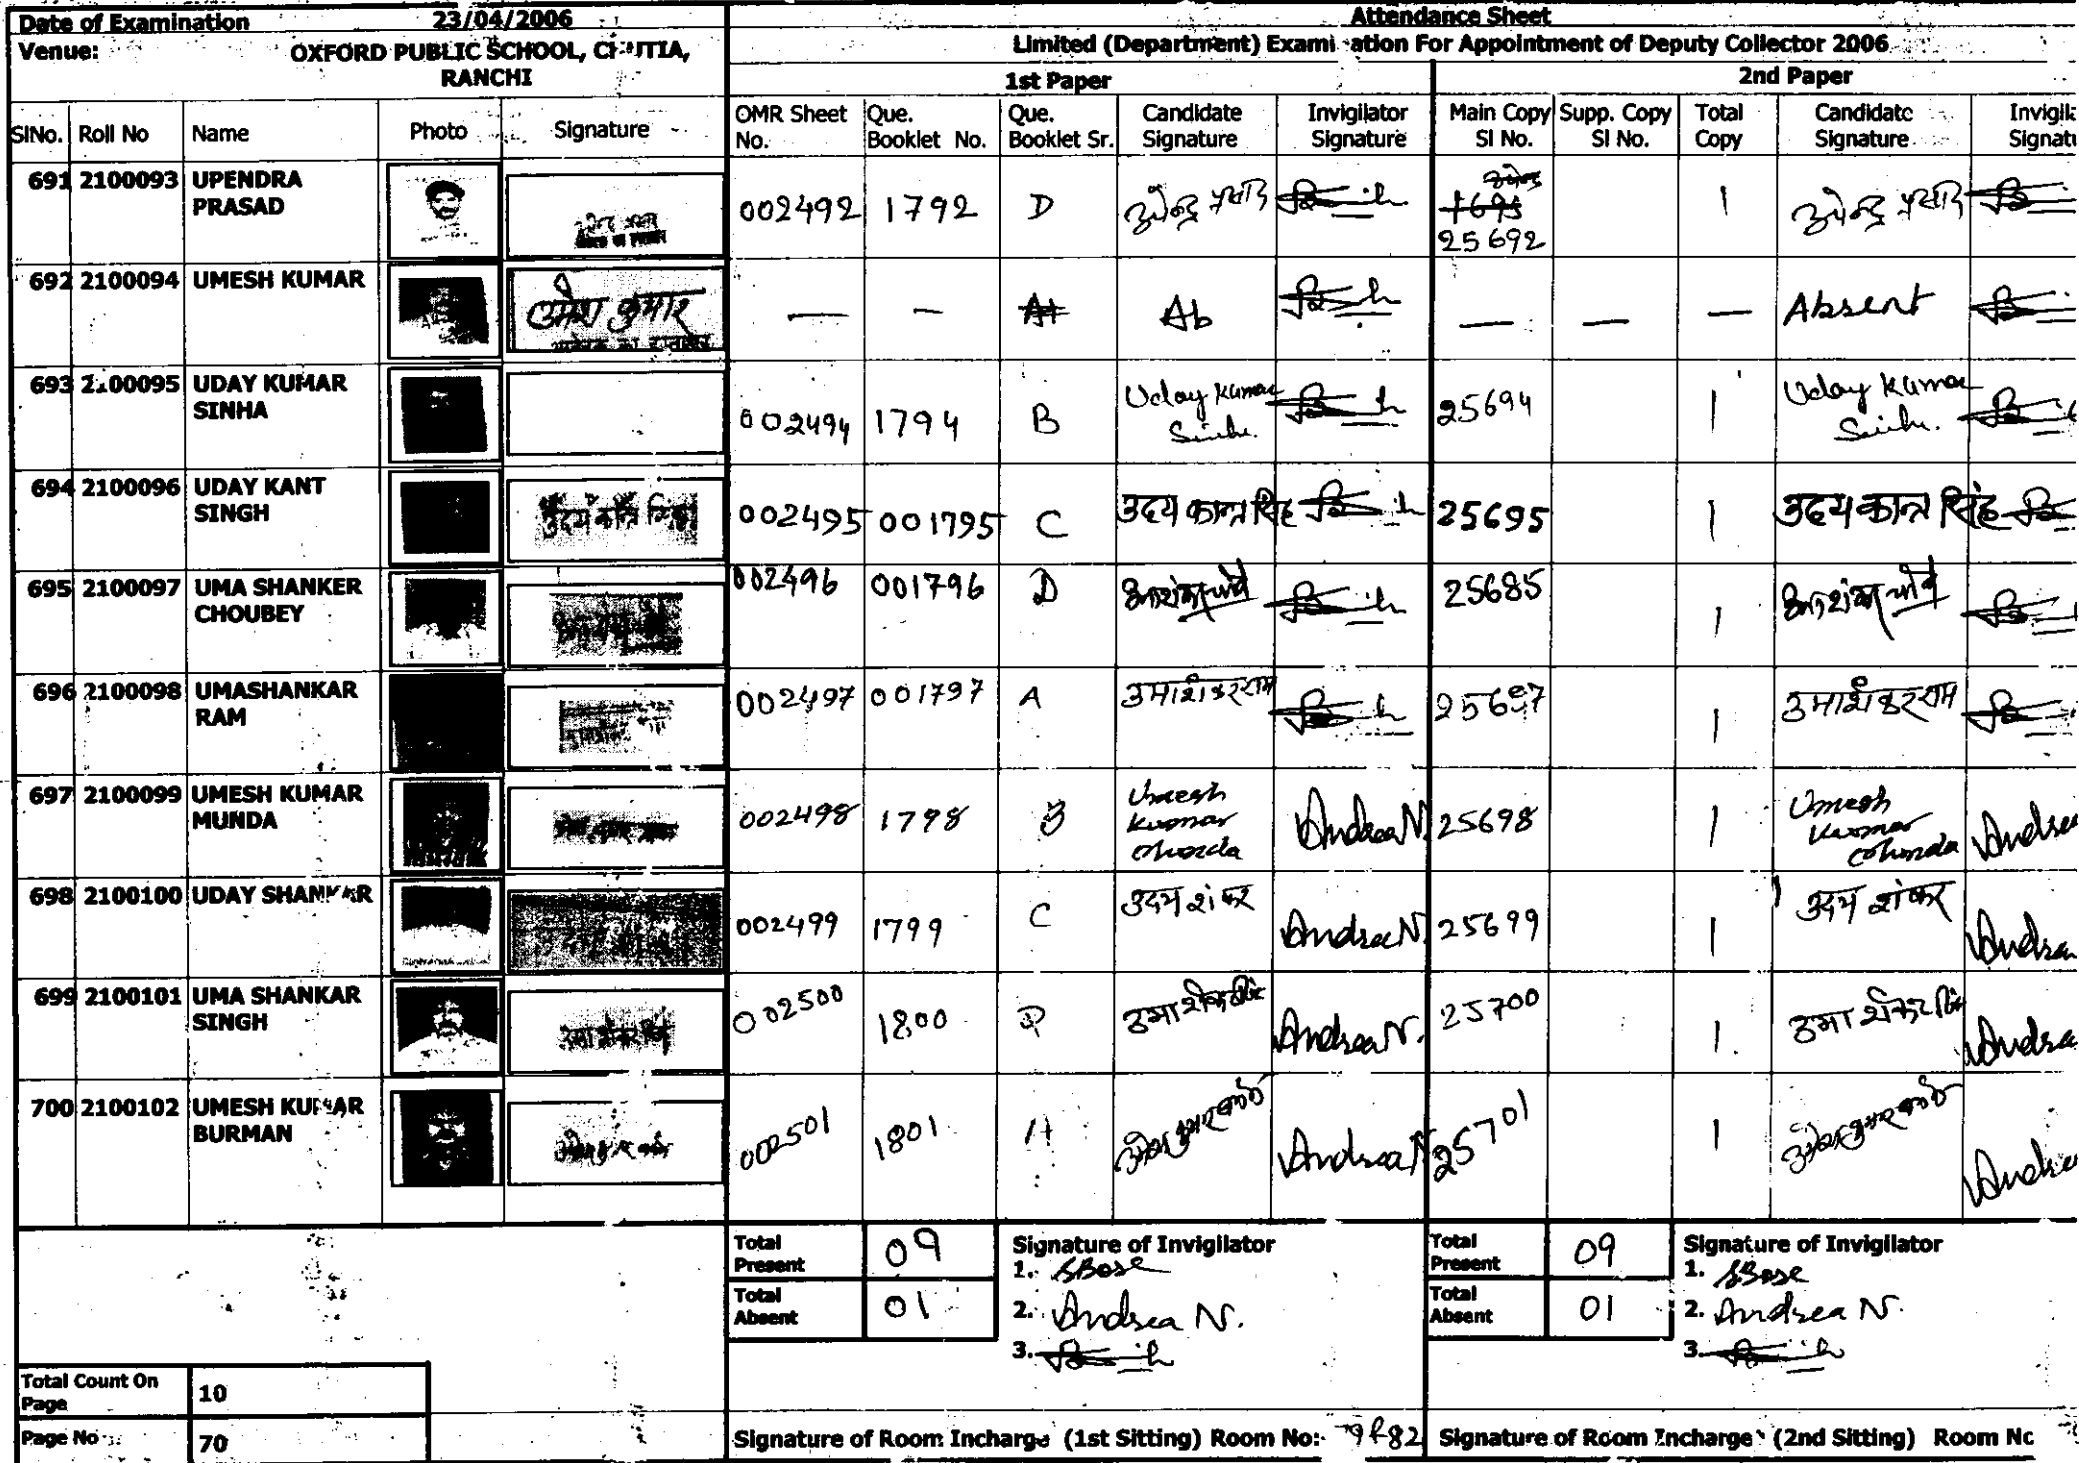 Date of Examination 23/04/2006
Venue: OXFORD PUBLIC SCHOOL, RANCHI
Attendance Sheet
Limited (Department) Examination For Appointment of Deputy Collector 2006
1st Paper 2nd Paper
SlNo. Roll No Name Photo Signature OMR Sheet No. Que. Booklet No. Que. Booklet Sr. Candidate Signature Invigilator Signature Main Copy Sl No. Supp. Copy Sl No. Total Copy Candidate Signature
691 2100093 UPENDRA PRASAD 002492 1792 D उपेन्द्र प्रसाद 25692 1 उपेन्द्र प्रसाद
692 2100094 UMESH KUMAR उमेश कुमार — — Ab — — — Absent
693 2100095 UDAY KUMAR SINHA 002494 1794 B Uday Kumar Sinha 25694 1 Uday Kumar Sinha
694 2100096 UDAY KANT SINGH 002495 001795 C उदय कान्त सिंह 25695 1 उदय कान्त सिंह
695 2100097 UMA SHANKER CHOUBEY 002496 001796 D 25685 1
696 2100098 UMASHANKAR RAM 002497 001797 A उमाशंकर राम 1 उमाशंकर राम
697 2100099 UMESH KUMAR MUNDA 002498 1798 B Umesh Kumar Munda Andrea N 25698 1 Umesh Kumar Munda Andrea
698 2100100 UDAY SHANKAR 002499 1799 C उदय शंकर Andrea N 25699 1 उदय शंकर Andrea
699 2100101 UMA SHANKAR SINGH 002500 1800 D उमा शंकर सिंह Andrea N. 25700 1 उमा शंकर सिंह Andrea
700 2100102 UMESH KUMAR BURMAN 002501 1801 A Andrea N 25701 1 Andrea
Total Present 09 Signature of Invigilator Total Present 09 Signature of Invigilator
1. SBose 1. SBose
Total Absent 01 2. Andrea N. Total Absent 01 2. Andrea N.
3. 3.
Total Count On Page 10
Page No 70
Signature of Room Incharge (1st Sitting) Room No: Signature of Room Incharge (2nd Sitting) Room No